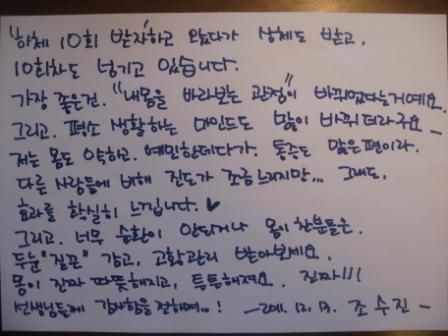 "하체 10회 받자"하고 왔다가 상체도 받고,
10회차도 넘기고 있습니다.
가장 좋은건. "내몸을 바라보는 관점"이 바뀌었다는거예요.
그리고. 평소 생활하는 마인드도 많이 바뀌더라구요 -
저는 몸도 약하고. 예민한데다가. 통증도 많은편이라.
다른 사람들에 비해 진도가 조금 느리지만... 그래도.
효과를 확실히 느낍니다. ♥
그리고. 너무 순환이 안되거나 몸이 찬분들은.
두눈 "질끈" 감고, 고확관리 받아보세요.
몸이 진짜 따뜻해지고, 튼튼해져요. 진짜!!!
선생님들께 감사함을 전하며..! - 2011. 12. 13. 조수진 -